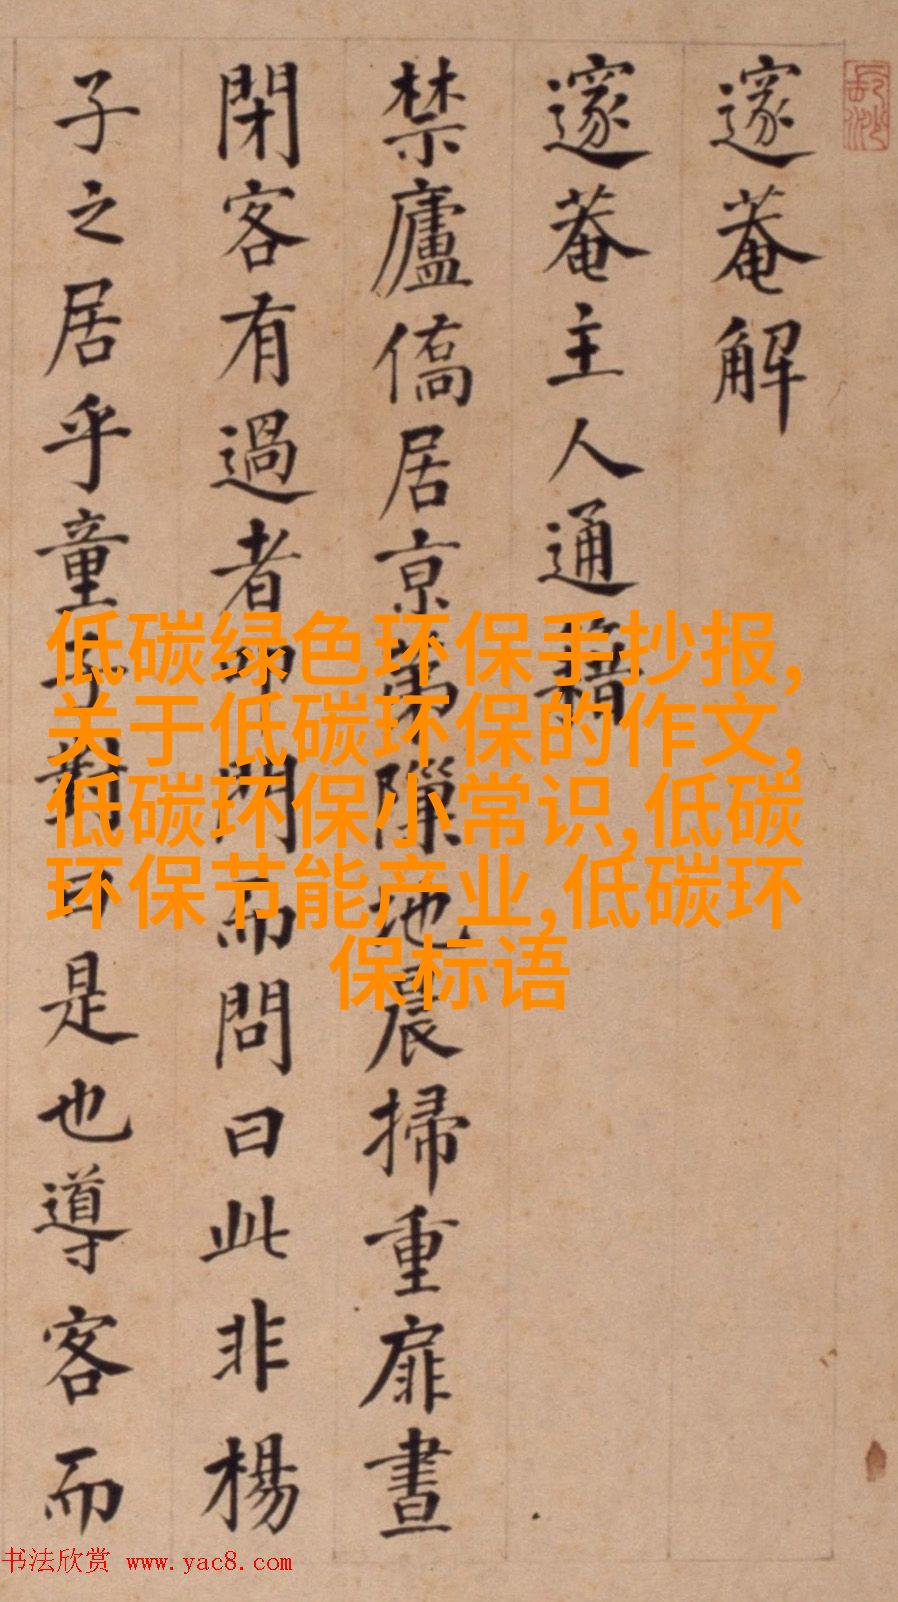 邃菴解
邃菴主人通籍
禁廬僑居京第隟地晨掃重扉晝
閉客有過者叩門而問曰此非楊
子之居乎童子對曰是也導客而
低碳绿色环保手抄报,
关于低碳环保的作文,
低碳环保小常识,低碳
环保节能产业,低碳环
保标语
书法欣赏 www.yac8.com